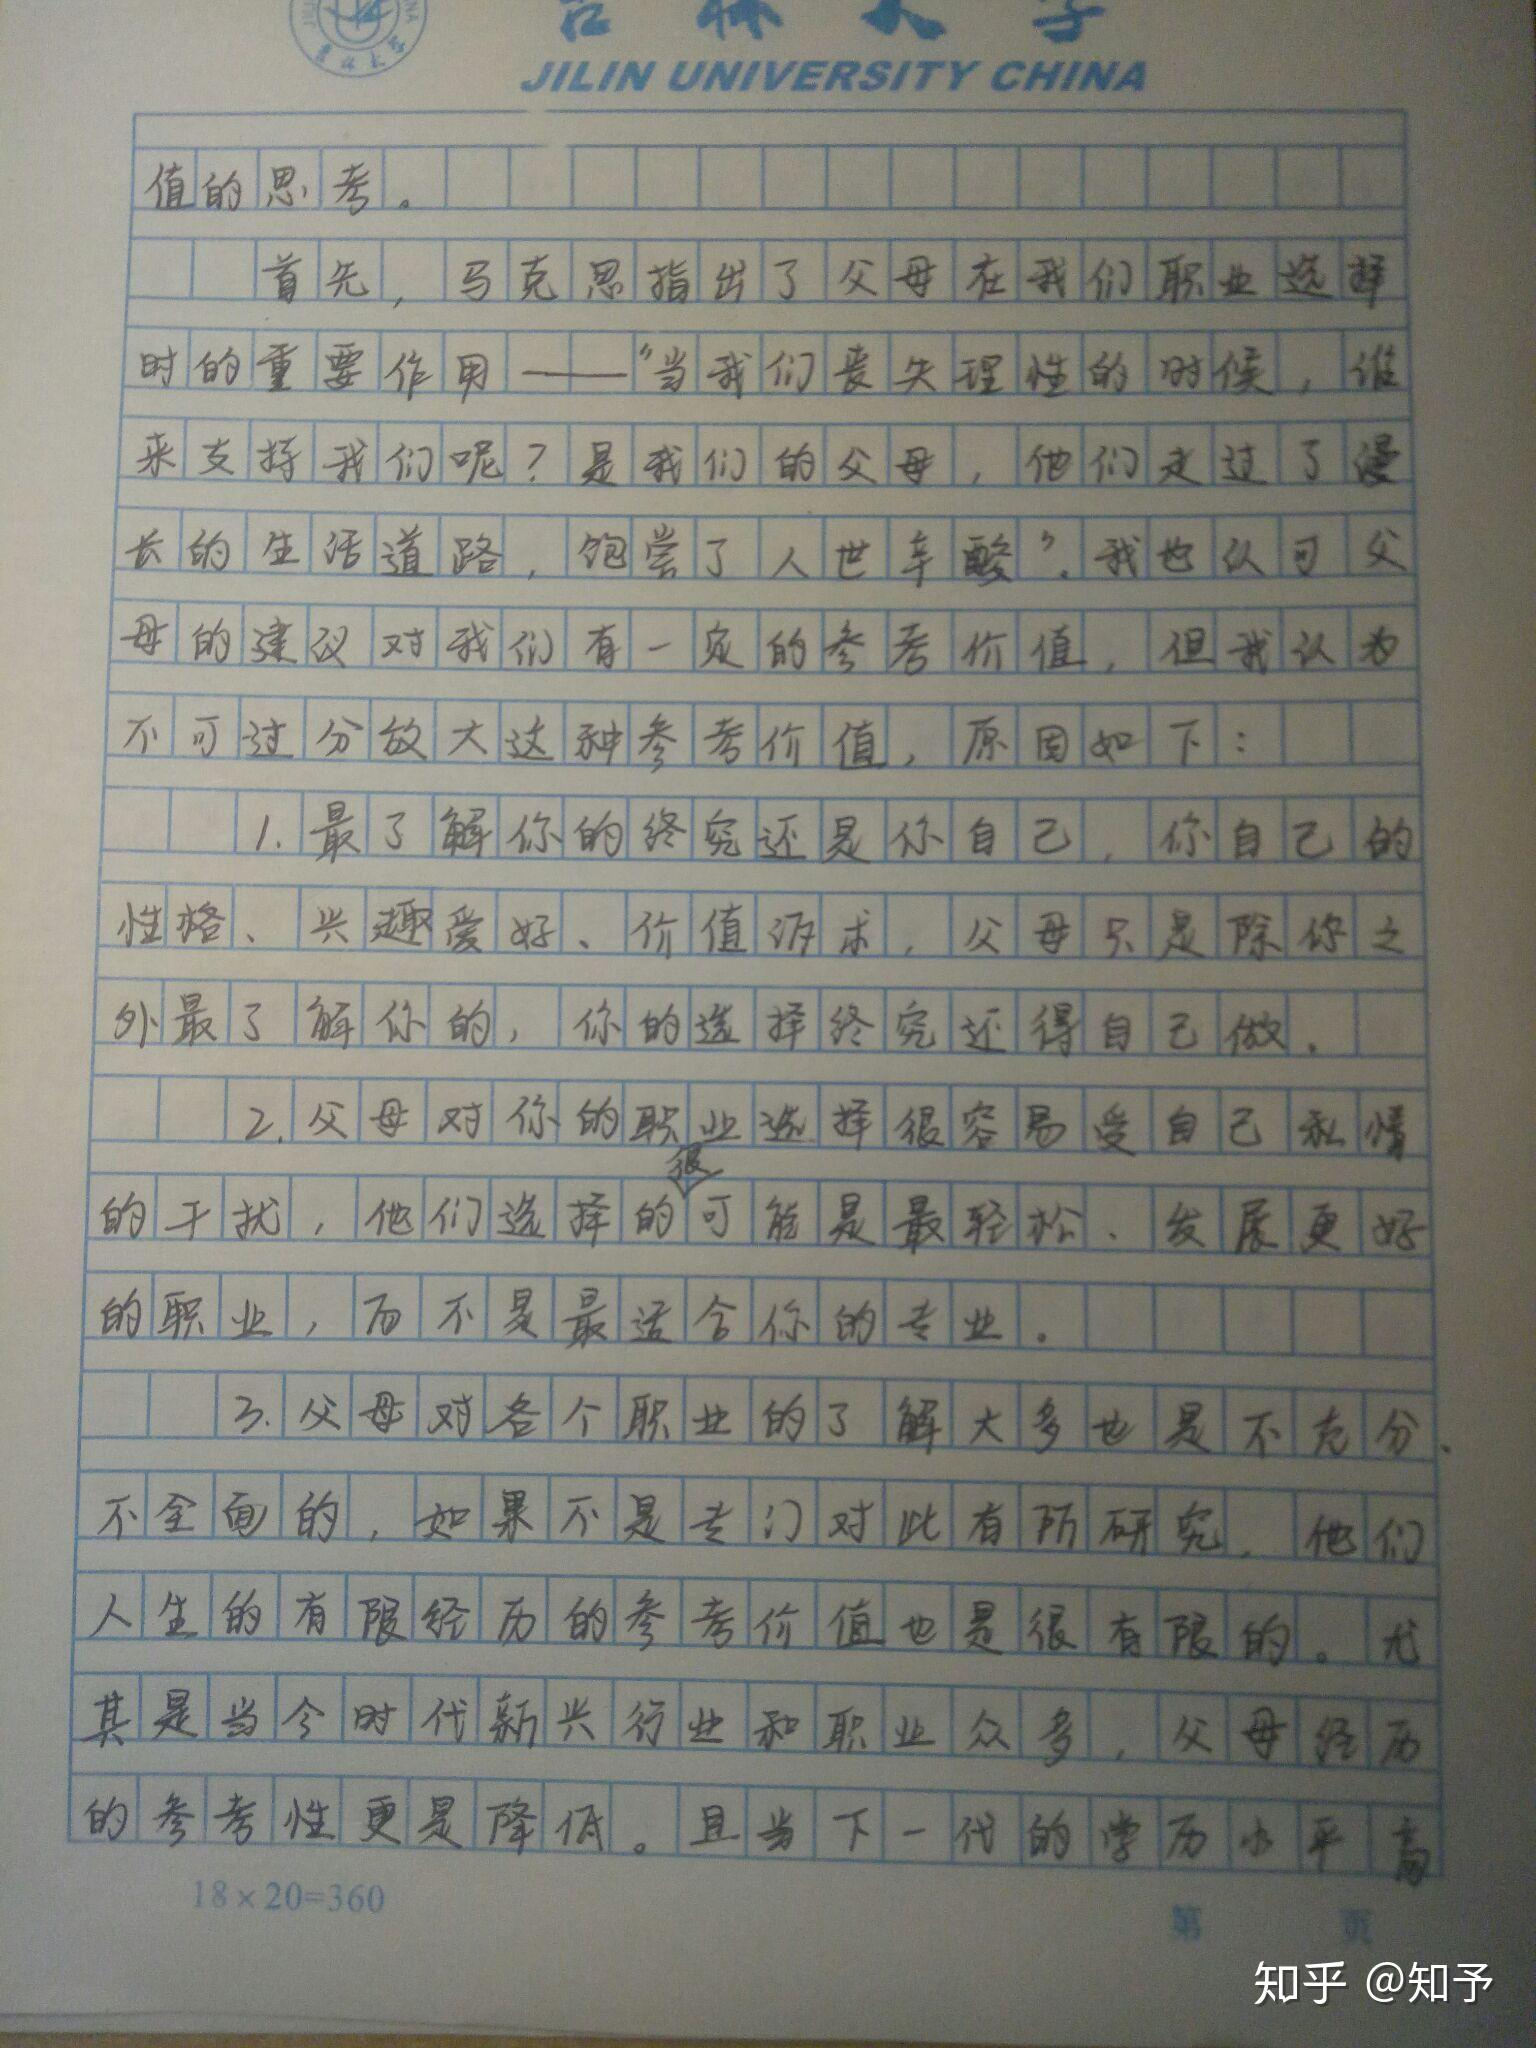 吉林大学
JILIN UNIVERSITY CHINA
值的思考。
首先，马克思指出了父母在我们职业选择
时的重要作用——“当我们丧失理性的时候，谁
来支持我们呢？是我们的父母，他们走过了漫
长的生活道路，饱尝了人世辛酸”。我也认可父
母的建议对我们有一定的参考价值，但我认为
不可过分放大这种参考价值，原因如下：
1.最了解你的终究还是你自己，你自己的
性格、兴趣爱好、价值诉求，父母只是除你之
外最了解你的，你的选择终究还得自己做．
2.父母对你的职业选择很容易受自己私情
的干扰，他们选择的很可能是最轻松、发展更好
的职业，而不是最适合你的专业．
3.父母对各个职业的了解大多也是不充分、
不全面的，如果不是专门对此有所研究，他们
人生的有限经历的参考价值也是很有限的。尤
其是当今时代新兴行业和职业众多，父母经历
的参考性更是降低。且当下一代的学历水平高
18×20=360
第 页
知乎 @知予